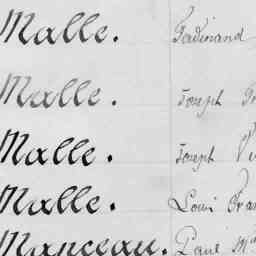 Malle. Ferdinand
Malle. Joseph
Malle. Joseph
Malle. Louis
Manceau. Paul